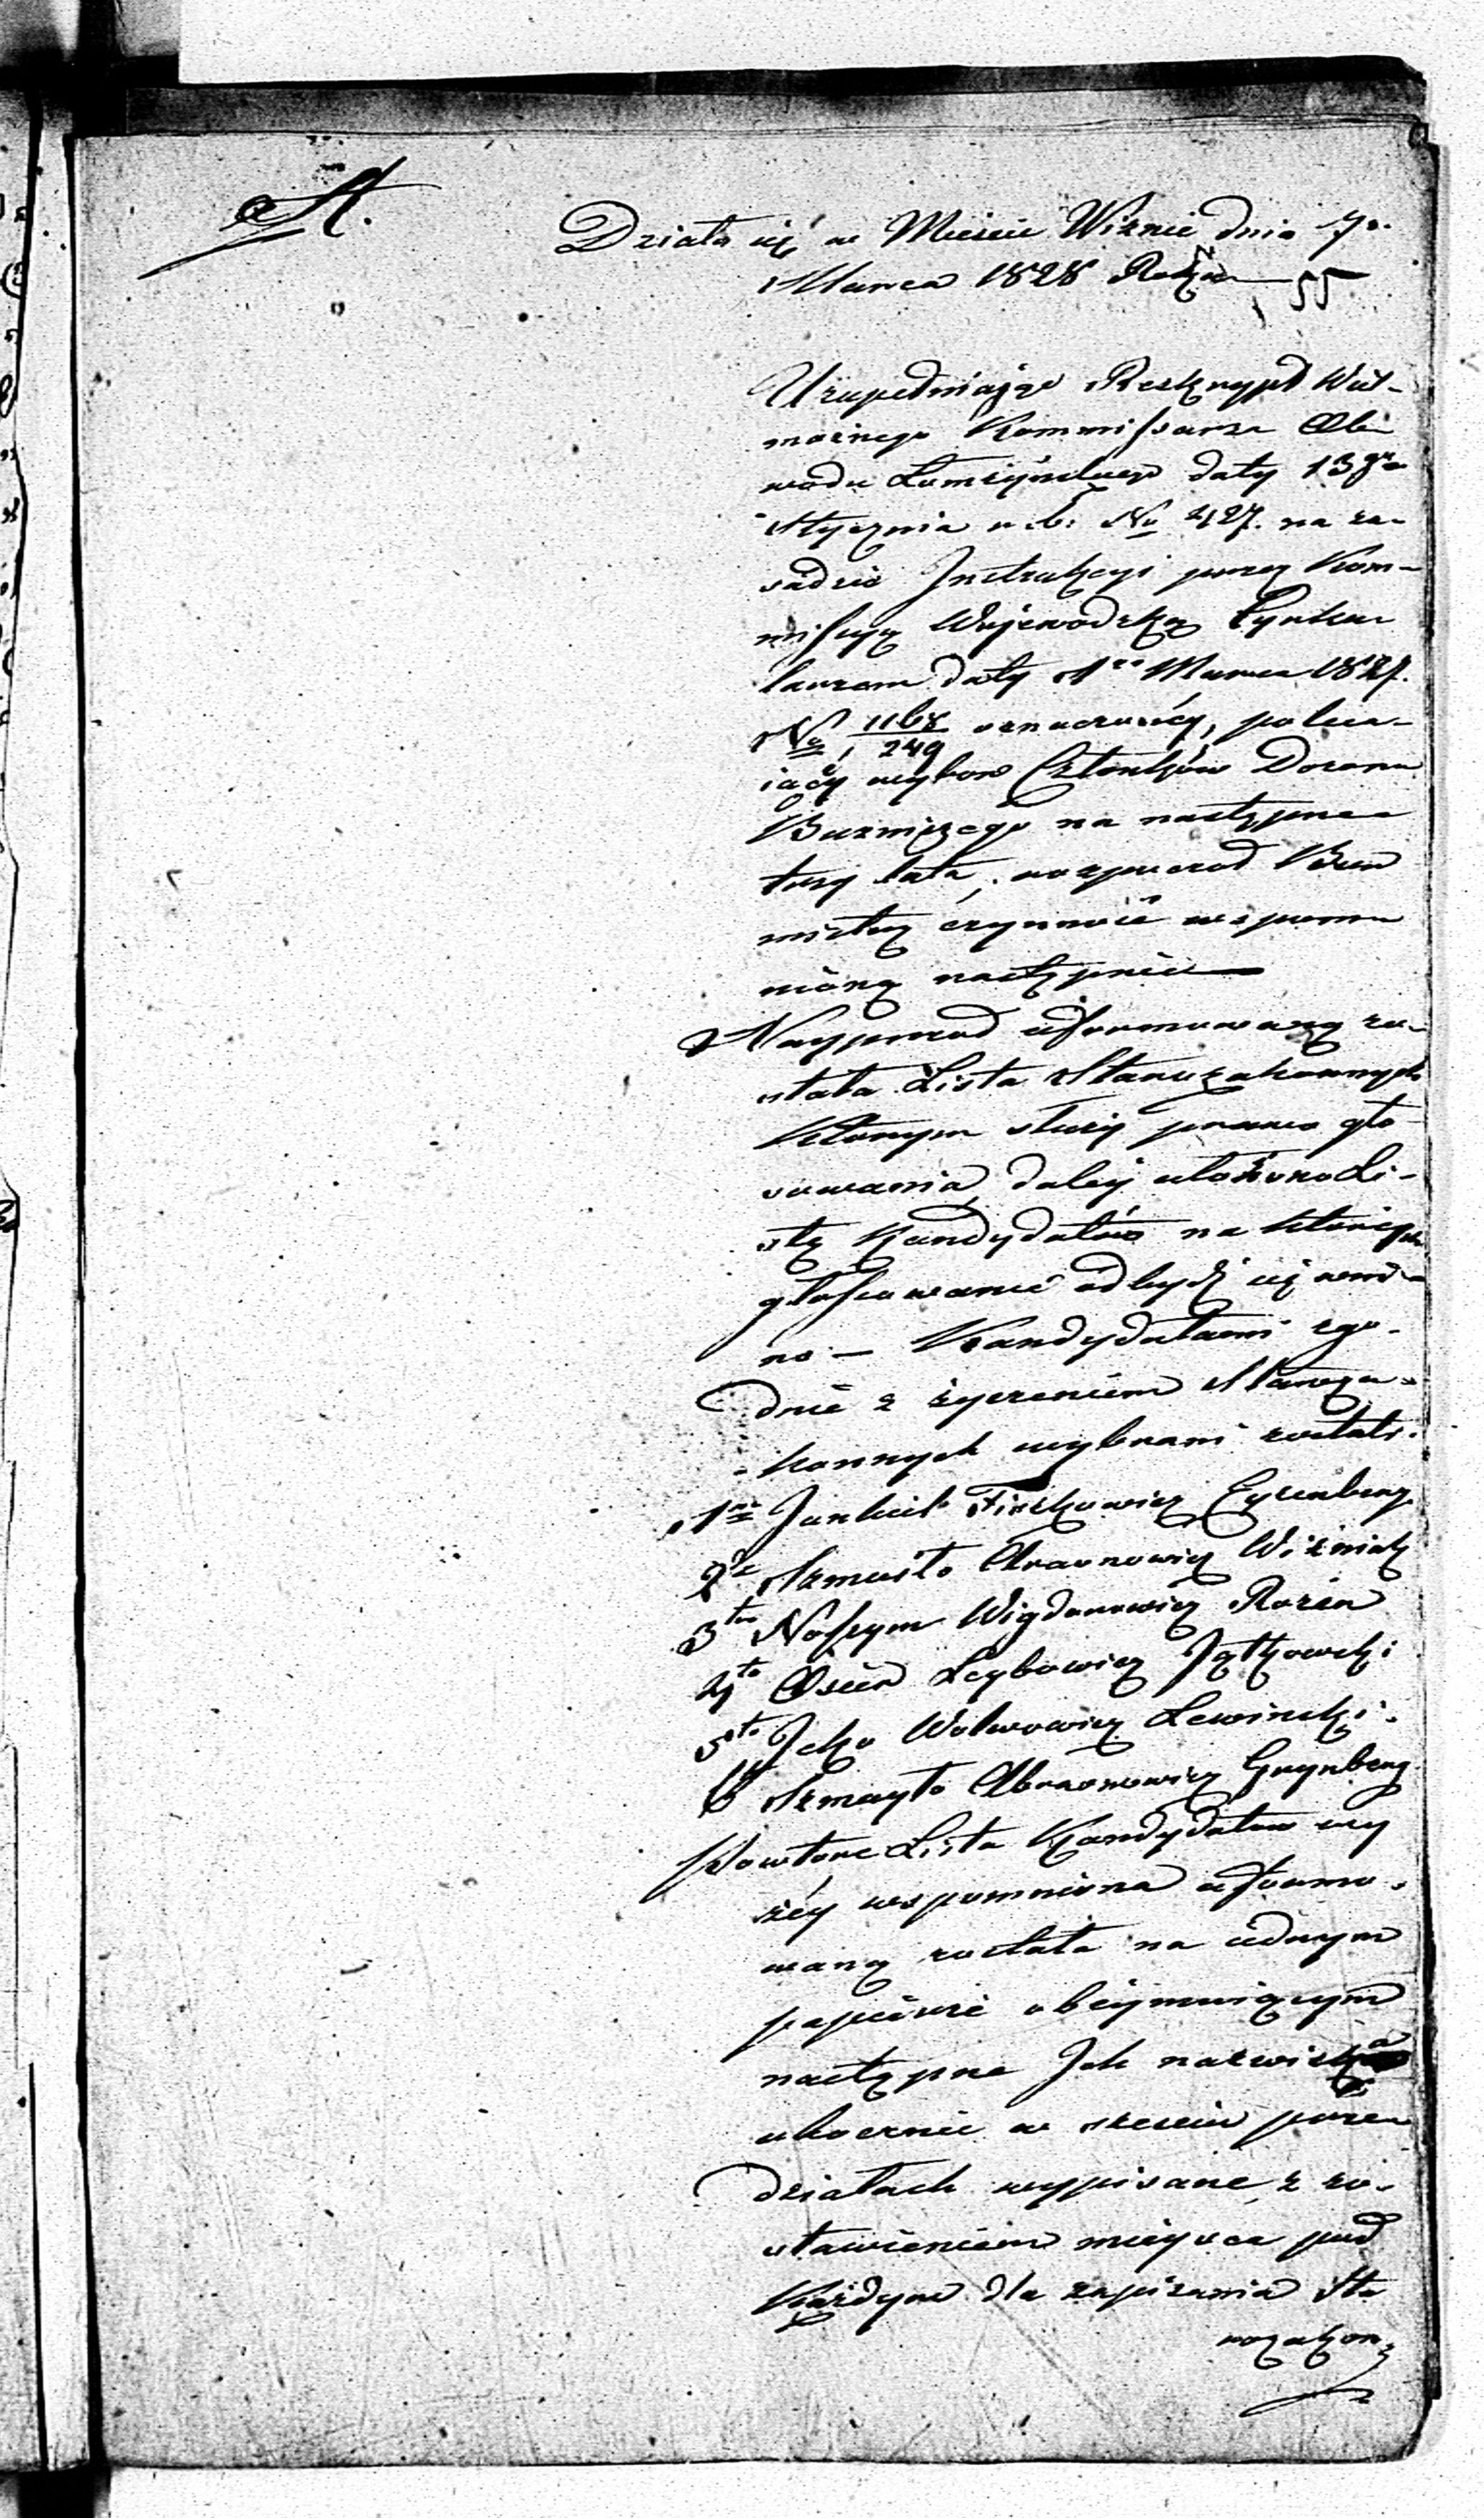 A.
Działo się w Mieście Wiznie dnia 7o
Marca 1828 Roku
55
Uzupełniaiąc Reskrypt Wiel-
możnego Kommissarza Ob-
wodu Łomżyńskiego daty 13go
Stycznia r. b. No 427. na za-
sadzie Instrukcyi przez Kom-
missyą Wojewodzką Cyrku-
larzem daty 1go Marca 1827.
No 1168/249 oznaczoney, poleca-
iący wybor Członków Dozoru
Bużniczego na następne
trzy lata, rozpoczął Bur
mistrz czynność wspom-
nioną następnie
Nayprzod uformowaną zo-
stała Lista Starozakonnych
którym służy prawo gło
sowania, daley ułożono Li-
stę Kandydatów na których
głosowanie odbydź się win-
no — Kandydatami zgo-
dnie z życzeniem Staroza-
konnych wybrani zostali.
1mo Jankiel Fiszkowicz Eyzenberg
2do Szmuyło Aronowicz Wiźniak
3tio Nossym Wigdorowicz Rozen
4to Osier Leybowicz Jątkowski
5to Icko Wolwowicz Lewinski.
6to Szmuyło Abramowicz Grynberg
Powtore Lista Kandydatow wy
żéy wspomniona uformo-
waną została na iednym
papierze obeymuiącym
następne Ich nazwiska
ubocznie w sześciu prze
działach wypisane, z zo-
stawieniem mieysca pod
każdym dla zapisania Sta
rozakon-